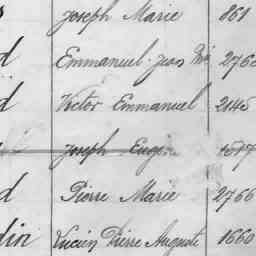 Joseph Marie 861
d Emmanuel Jean
d Victor Emmanuel 2145
Joseph
d Pierre Marie 2766
din Lucien Pierre Auguste 1660